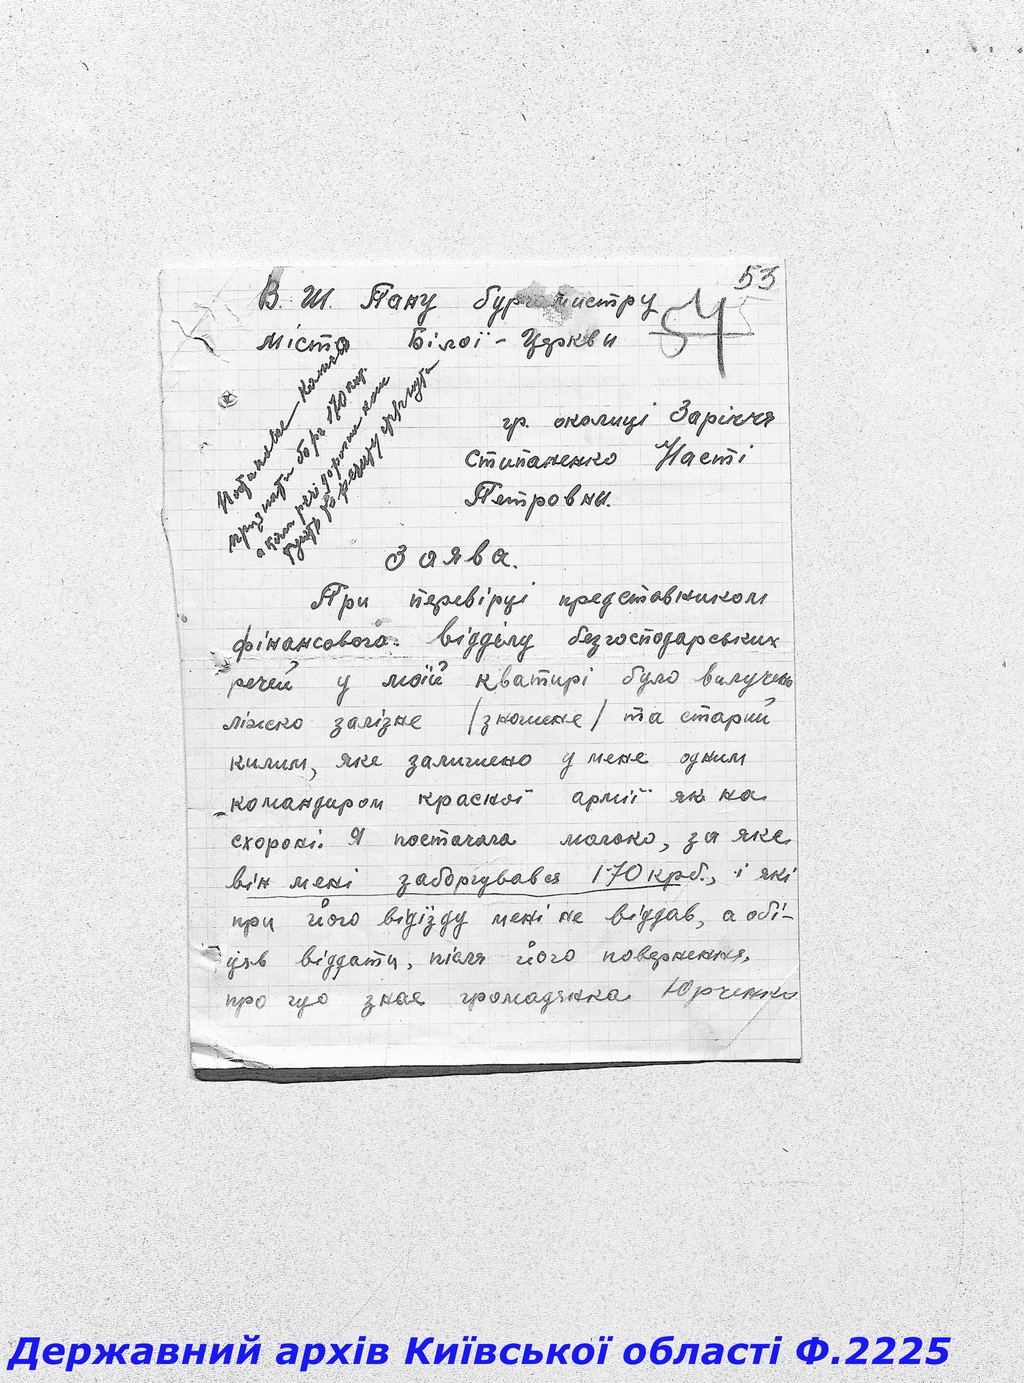 53
54
В. Ш. Пану бургомистру
міста Білої-Церкви
гр. околиці Заріччя
Степаненко Насті
Петровни.
Заява.
При перевірці представником
фінансового відділу безгосподарських
речей у моїй квартирі було вилучено
ліжко залізне /зношене/ та старий
килим, яке залишено у мене одним
командиром красної армії як на
схороні. Я постачала молоко, за яке
він мені заборгувався 170 крб., і які
при його відїзду мені не віддав, а обі-
цяв віддати, після його повернення,
про що знає громадянка Юрченко
признати борг 170 крб.
а коли речі дорогие
Державний архів Київської області Ф.2225